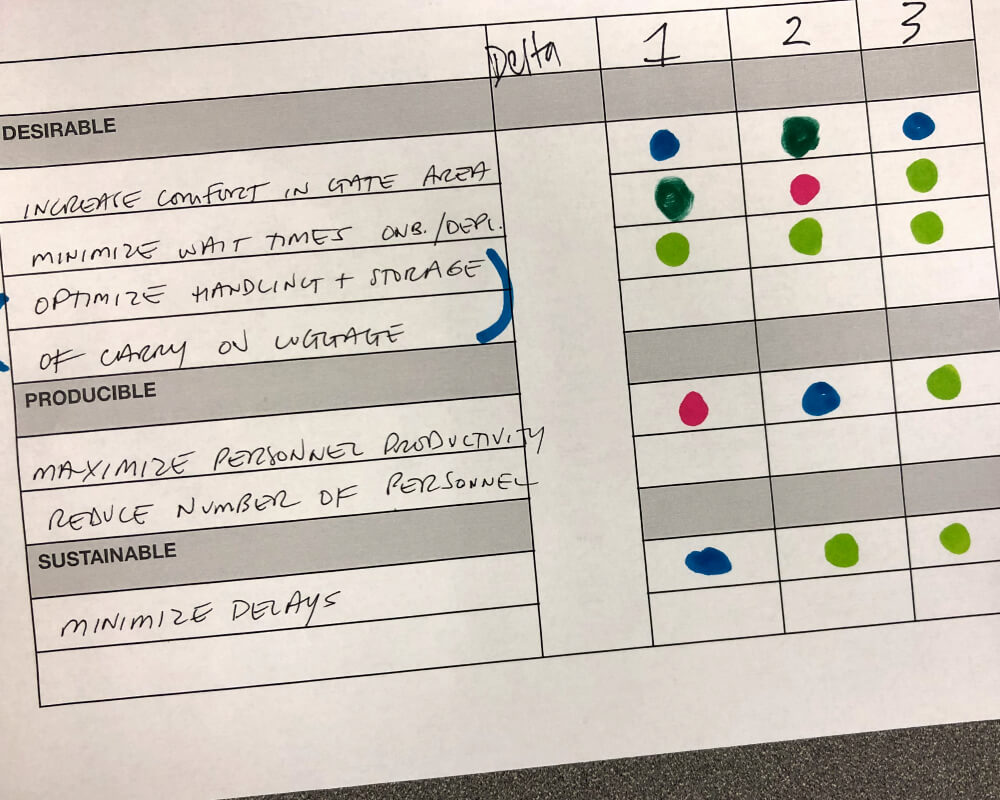 Delta 1 2 3
DESIRABLE
INCREASE COMFORT IN GATE AREA
MINIMIZE WAIT TIMES ONB./DEPL.
OPTIMIZE HANDLING + STORAGE
OF CARRY ON LUGGAGE
PRODUCIBLE
MAXIMIZE PERSONNEL PRODUCTIVITY
REDUCE NUMBER OF PERSONNEL
SUSTAINABLE
MINIMIZE DELAYS